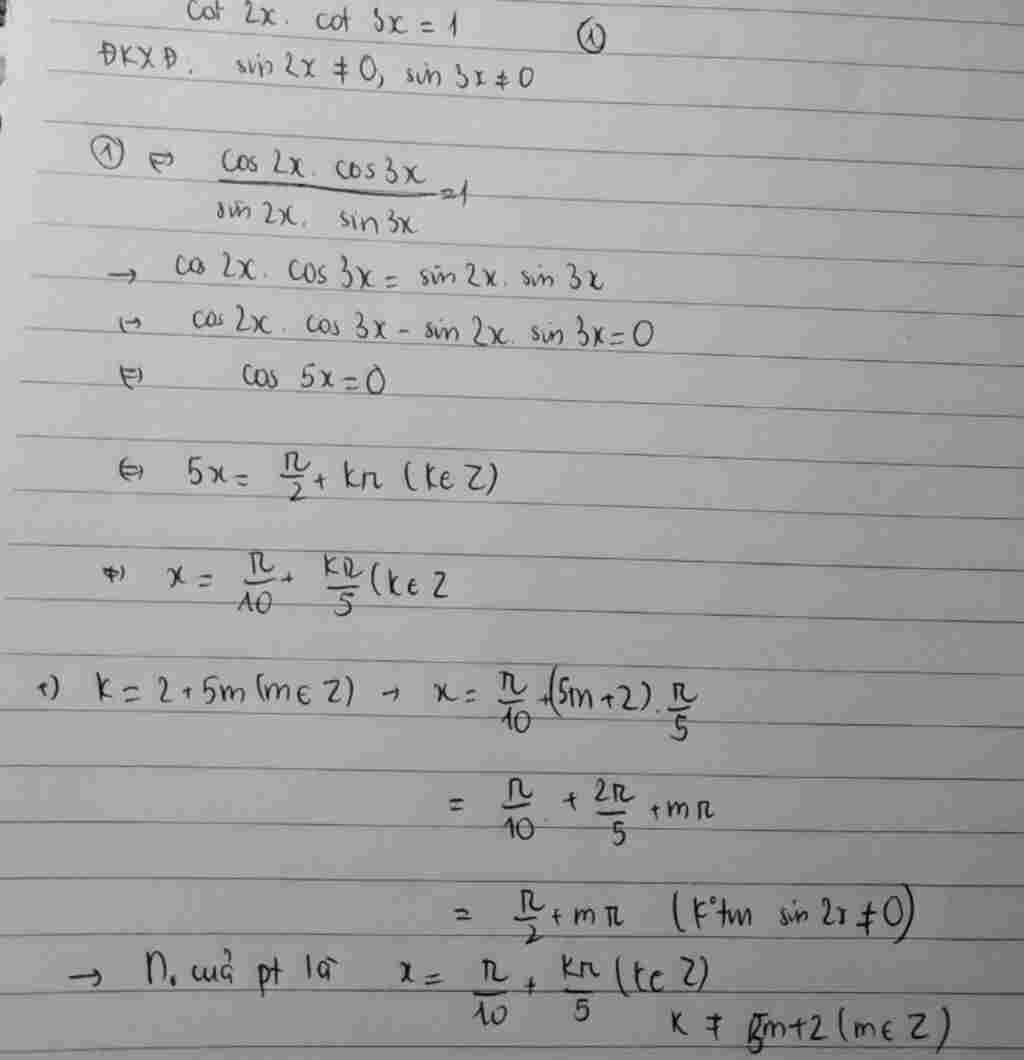 cot 2x. cot 3x = 1 ①
ĐKXĐ. sin 2x ≠ 0, sin 3x ≠ 0
① ⇔ cos 2x. cos 3x / sin 2x. sin 3x = 1
→ cos 2x. cos 3x = sin 2x. sin 3x
↔ cos 2x. cos 3x - sin 2x. sin 3x = 0
⇔ cos 5x = 0
⇔ 5x = π/2 + kπ (k ∈ Z)
⇔ x = π/10 + kπ/5 (k ∈ Z
+) k = 2 + 5m (m ∈ Z) → x = π/10 + (5m + 2). π/5
= π/10 + 2π/5 + mπ
= π/2 + mπ (k° tm sin 2x ≠ 0)
→ n. cuả pt là x = π/10 + kπ/5 (k ∈ Z)
k ≠ 5m + 2 (m ∈ Z)